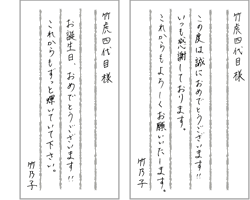 竹虎四代目様
この度は誠におめでとうございます!!
いつも感謝しております。
これからもよろしくお願いいたします。
竹乃子
竹虎四代目様
お誕生日、おめでとうございます!!
これからもずっと輝いていて下さい。
竹乃子